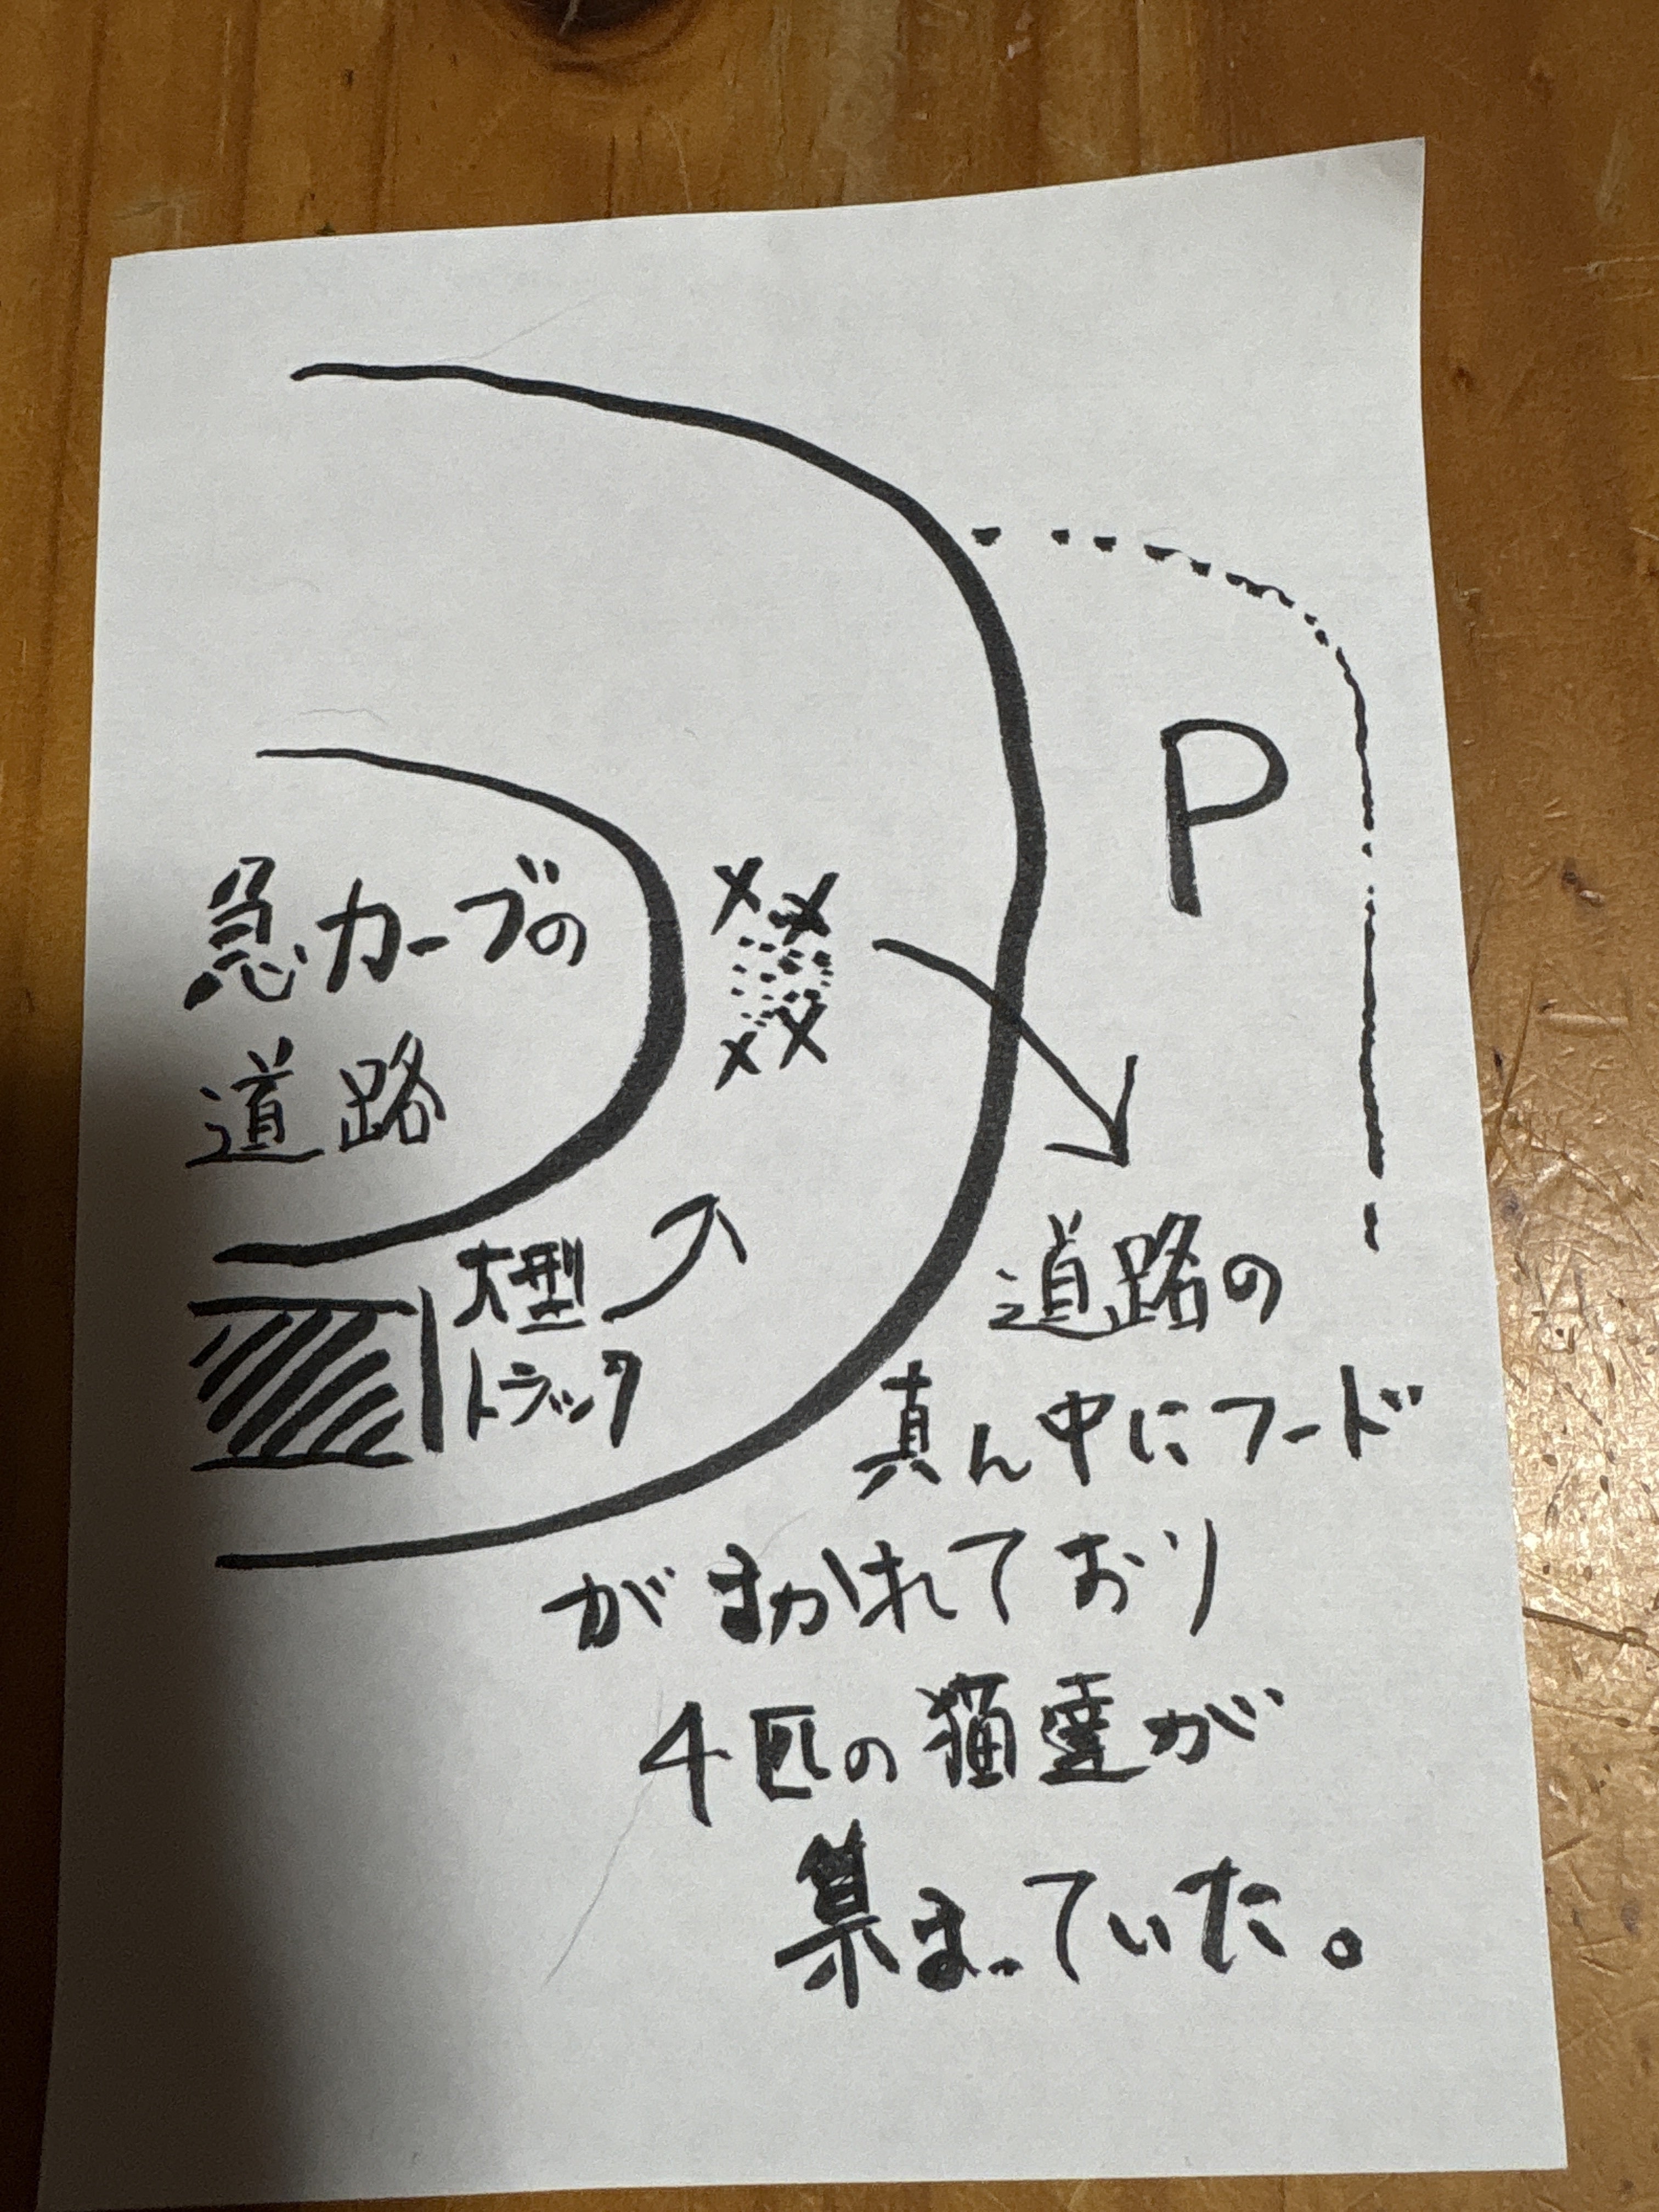 P
急カーブの
道路
大型
トラック
道路の
真ん中にフード
がまかれており
4匹の猫達が
集まっていた。